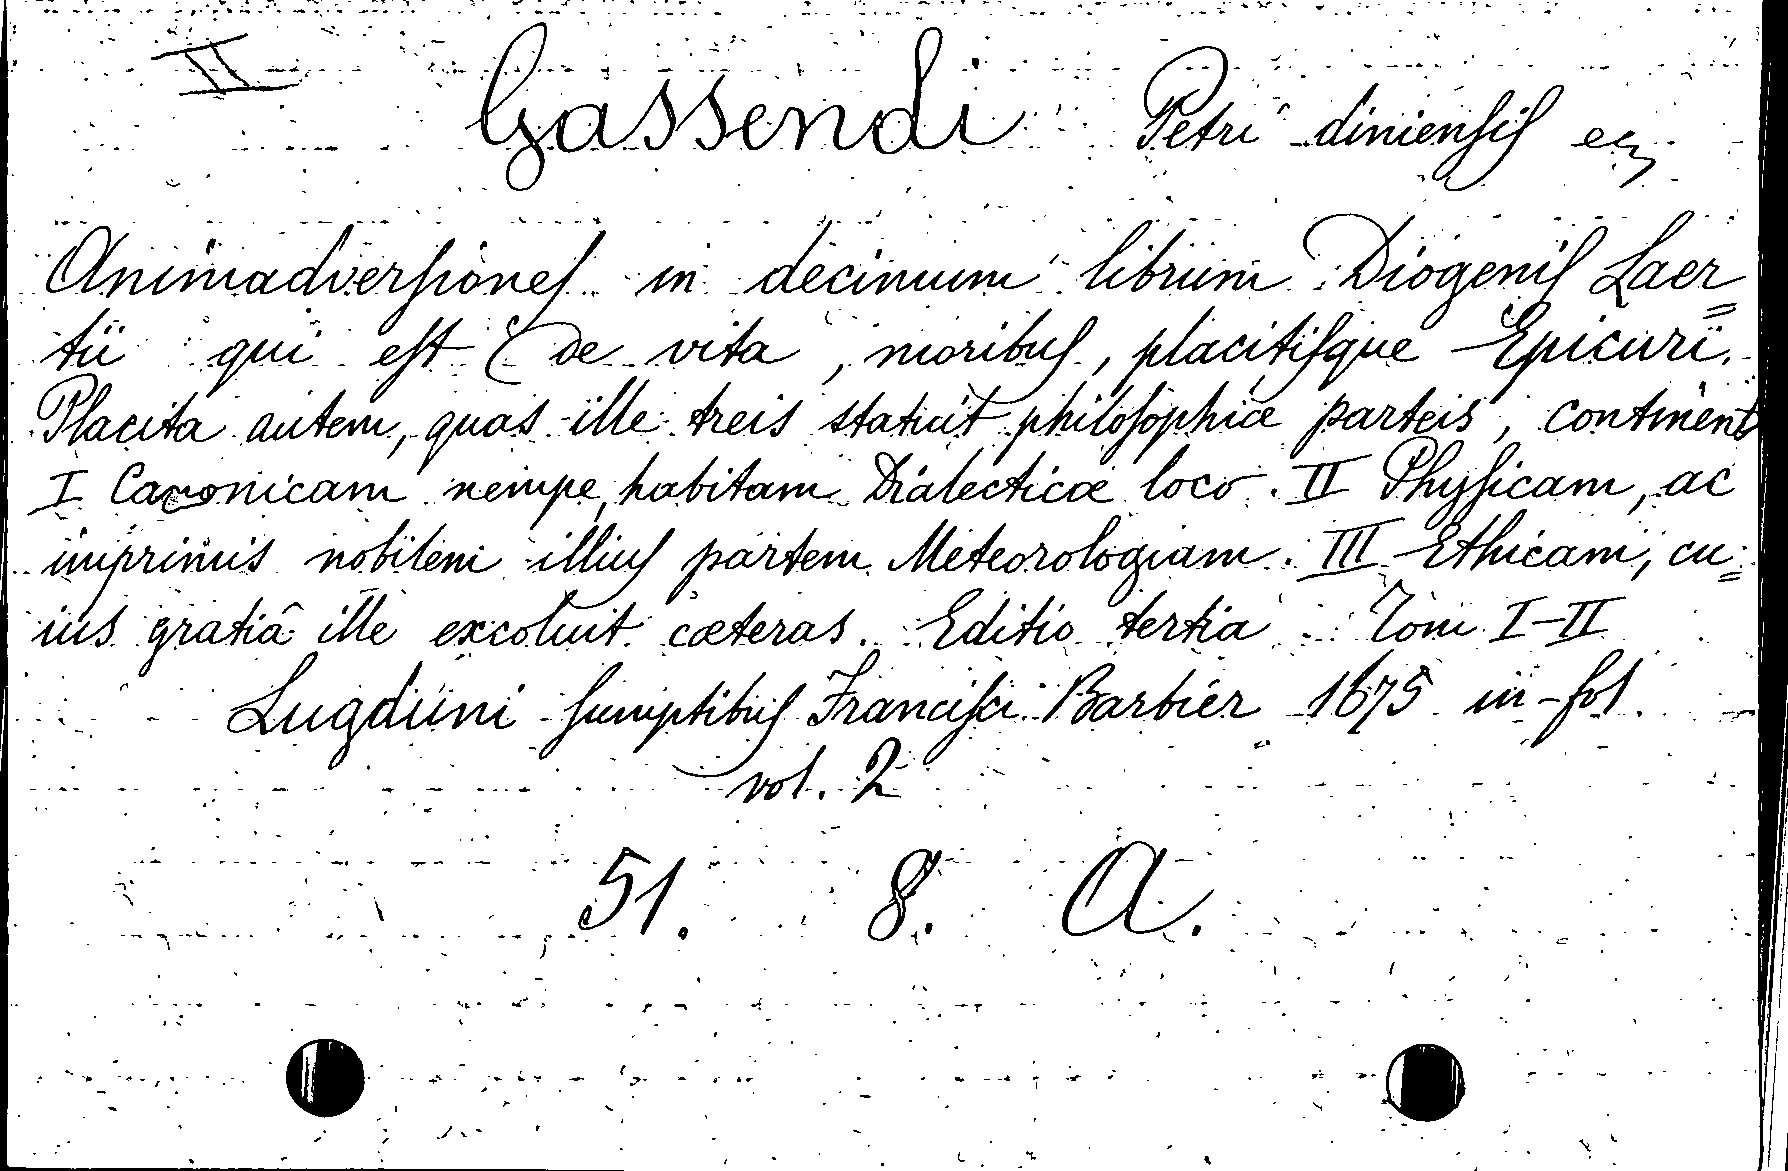 II Gassendi Petri dinienſiſ
Animadverſioneſ in decimum librum Diogeniſ Laer=
tii qui eſt de vita, moribuſ, placitiſque Epicuri.
Placita autem, quas ille treis statuit philoſophiæ parteis, continent
I Canonicam nempe, habitam Dialecticæ loco. II Phyſicam, ac
imprimis nobilem illiuſ partem Meteorologiam. III Ethicam, cu=
ius gratiâ ille excoluit cæteras. Editio tertia Tom I-II
Lugduni ſumptibuſ Franciſci Barbier 1675 in-fol.
vol. 2
51. 8. A.